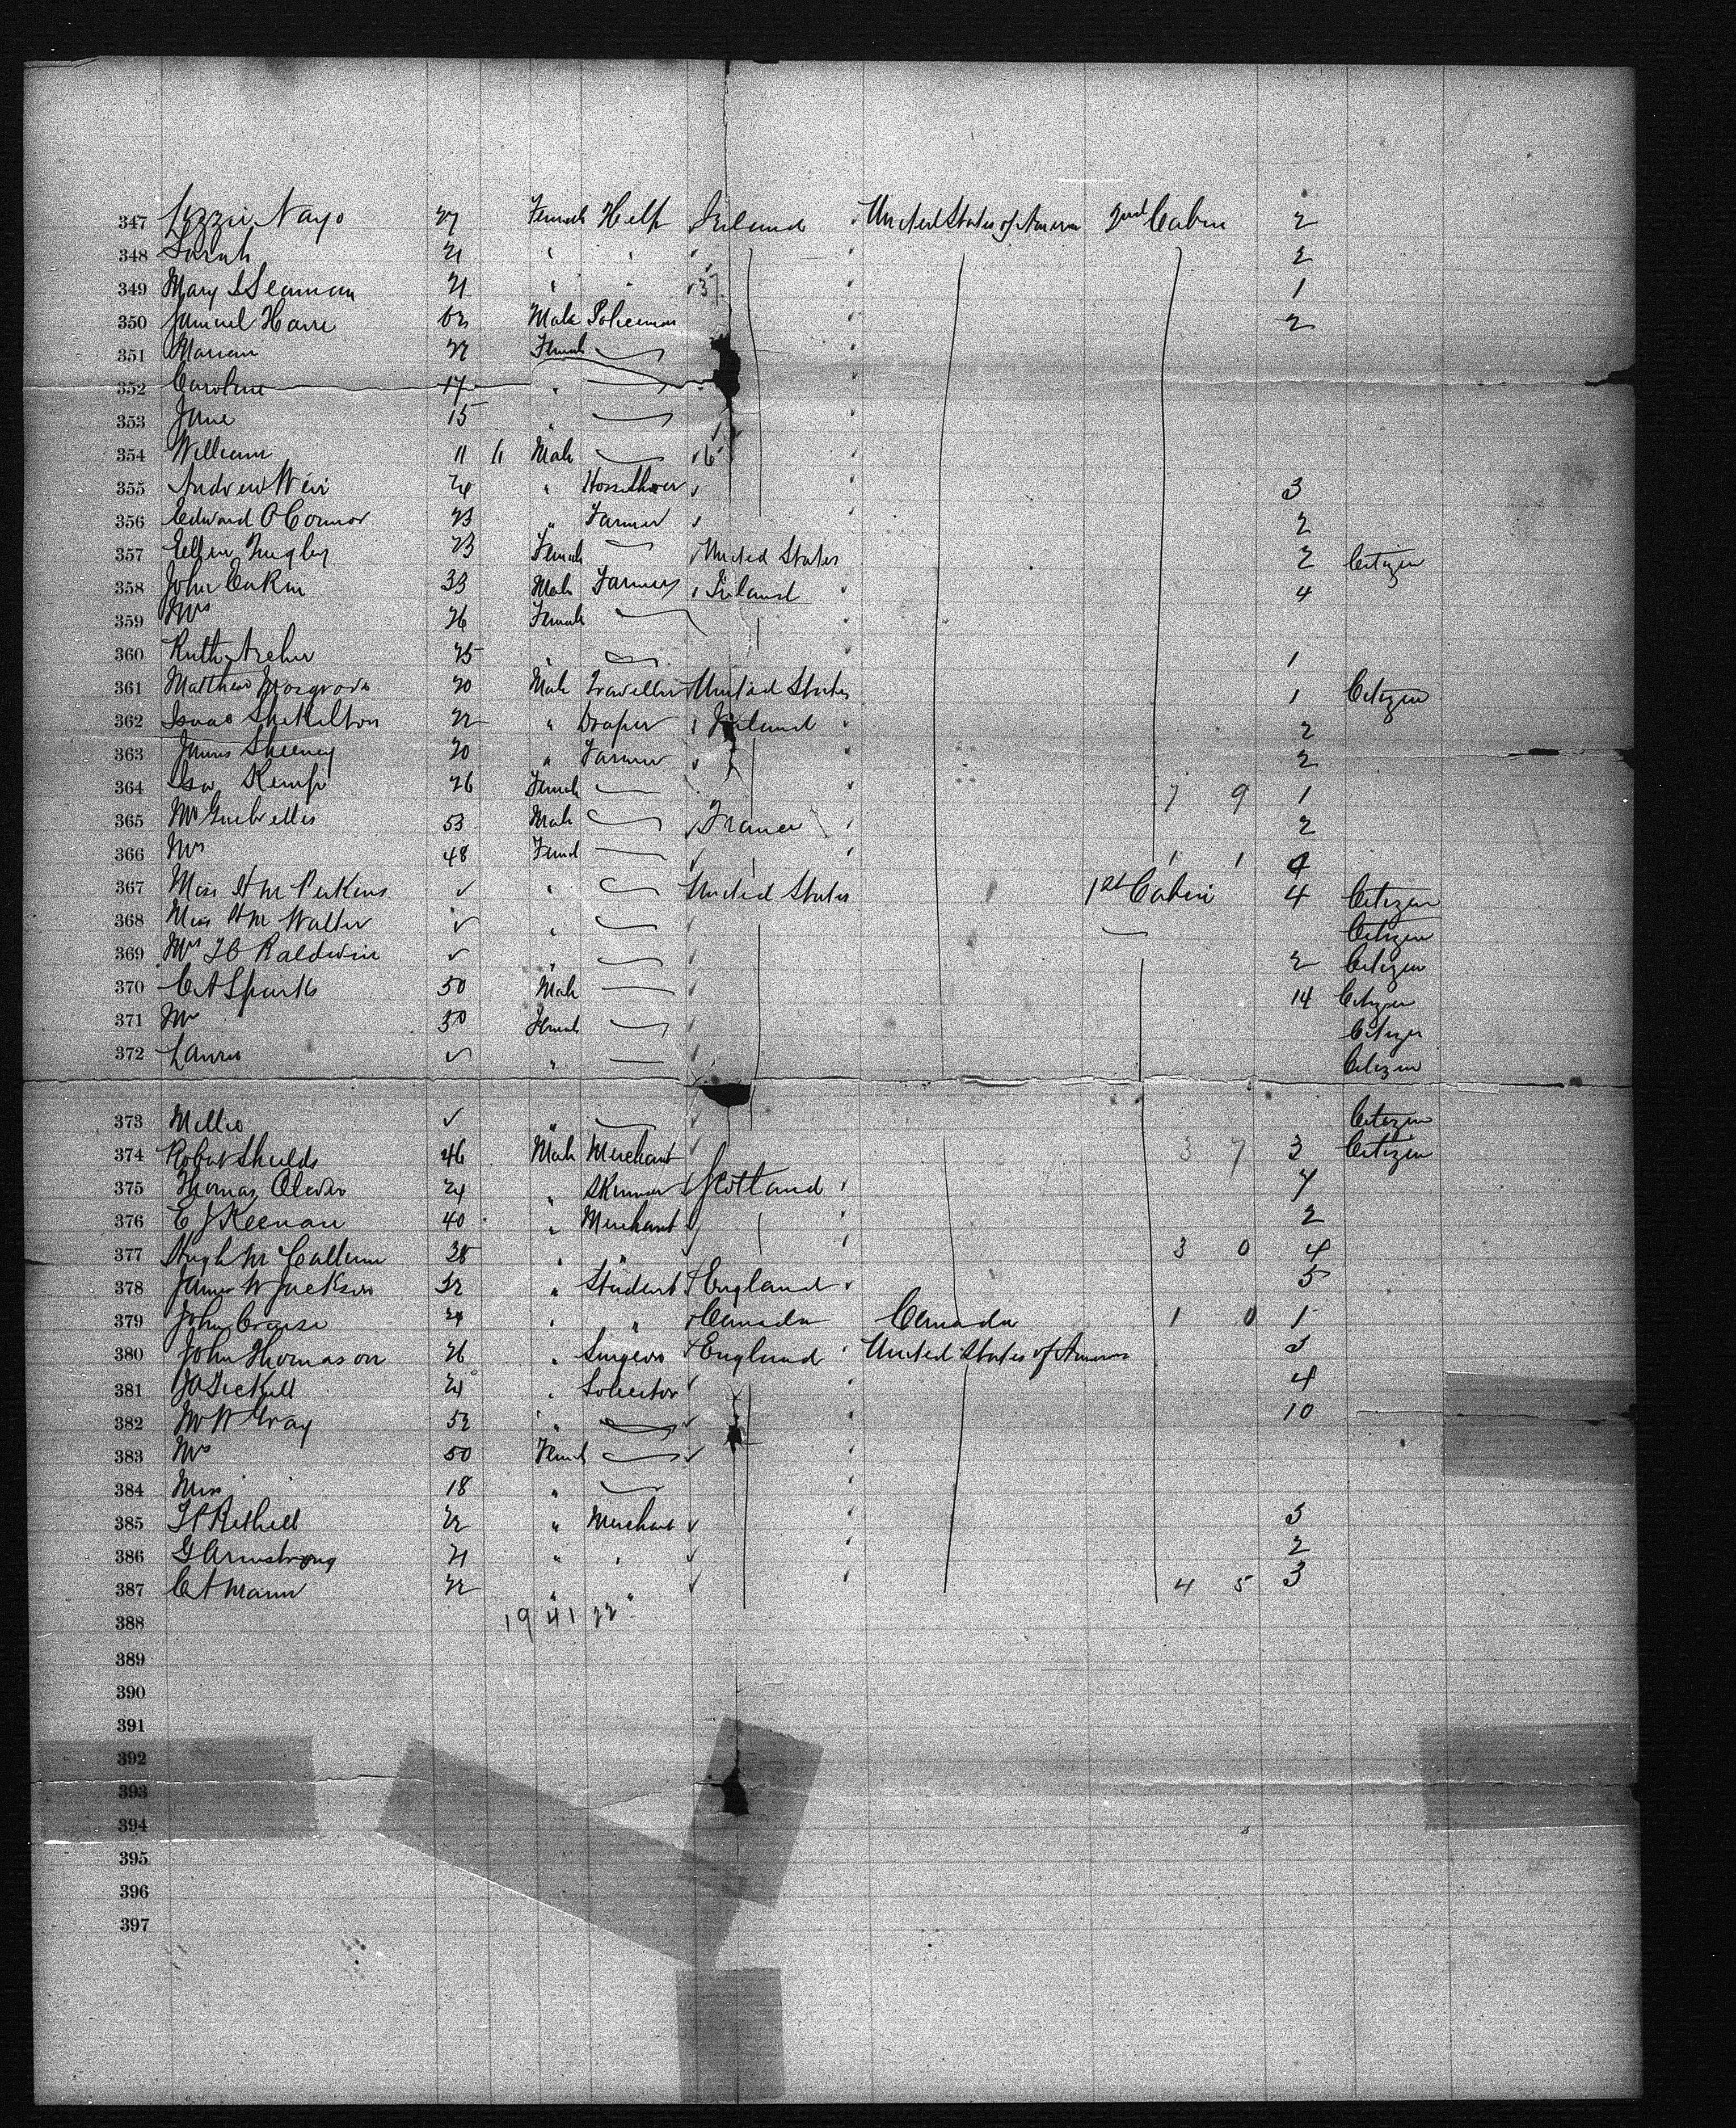 347 Lizzie Nayo 27 Female Help Ireland United States of America 2nd Cabin 2
348 Sarah 21 " " 2
349 Mary S Seaman 21 " " 37 1
350 Samuel Harre 62 Male Policeman 2
351 Marian 22 Female
352 Caroline 17 "
353 Jane 15 "
354 William 11 11 Male 16
355 Andrew Weir 24 " Horse Shoer 3
356 Edward O'Connor 23 " Farmer 2
357 Ellen 23 Female United States 2 Citizen
358 John Eakin 33 Male Farmer Ireland 4
359 Mrs 26 Female
360 Ruth Archer 25 " 1
361 Matthew Mosgrove 20 Male Traveller United States 1 Citizen
362 Isaac Shekilton 22 " Draper Ireland 2
363 James Sheeney 20 " Farmer 2
364 Isa Kemp 26 Female 7 9 1
365 Mr 53 Male France 2
366 Mrs 48 Femal 1 1 4
367 Miss H M Perkins " United States 1st Cabin 4 Citizen
368 Miss H M Walter " Citizen
369 Mrs T C Baldwin " 2 Citizen
370 C A Sparks 50 Male 14 Citizen
371 Mrs 50 Female Citizen
372 Laura " Citizen
373 Millie " Citizen
374 Robert Shields 46 Male Merchant 3 7 3 Citizen
375 Thomas 24 " Skinner Scotland 7
376 E J Keenan 40 " Merchant 2
377 Hugh McCallum 38 " " 3 0 4
378 James W Jackson 32 " Student England 5
379 John Craise 24 " " Canada Canada 1 0 1
380 John Thomason 26 " Surgeon England United States of America 3
381 J A Tickell 24 " Solicitor 4
382 Mr W Gray 52 " 10
383 Mrs 50 Femal
384 Miss 18 "
385 T P Bethell 22 " Merchant 3
386 G Armstrong 21 " " 2
387 C A Mann 22 " " 4 5 3
388 19 41 22
389
390
391
392
393
394
395
396
397